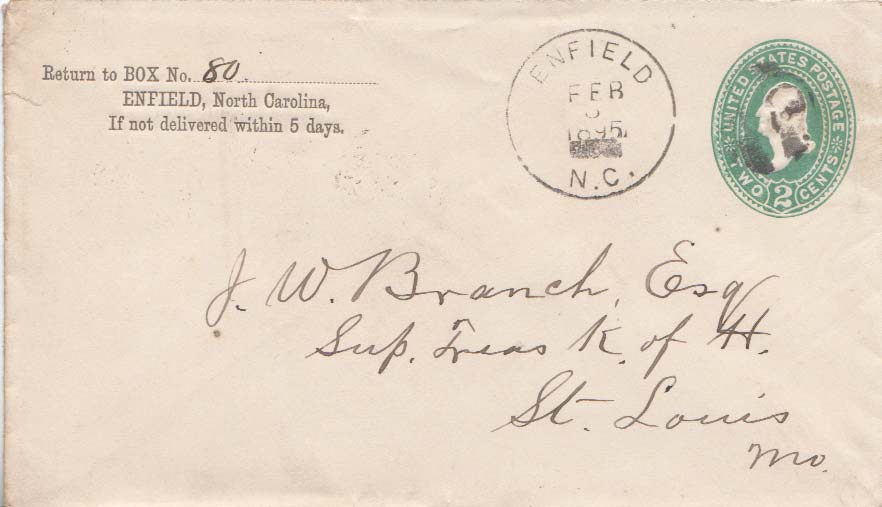 Return to BOX No. 80.
ENFIELD, North Carolina,
If not delivered within 5 days.
ENFIELD
FEB
1895
N.C.
UNITED STATES POSTAGE
TWO 2 CENTS
J. W. Branch, Esq
Sup. Treas K. of H.
St. Louis
Mo.